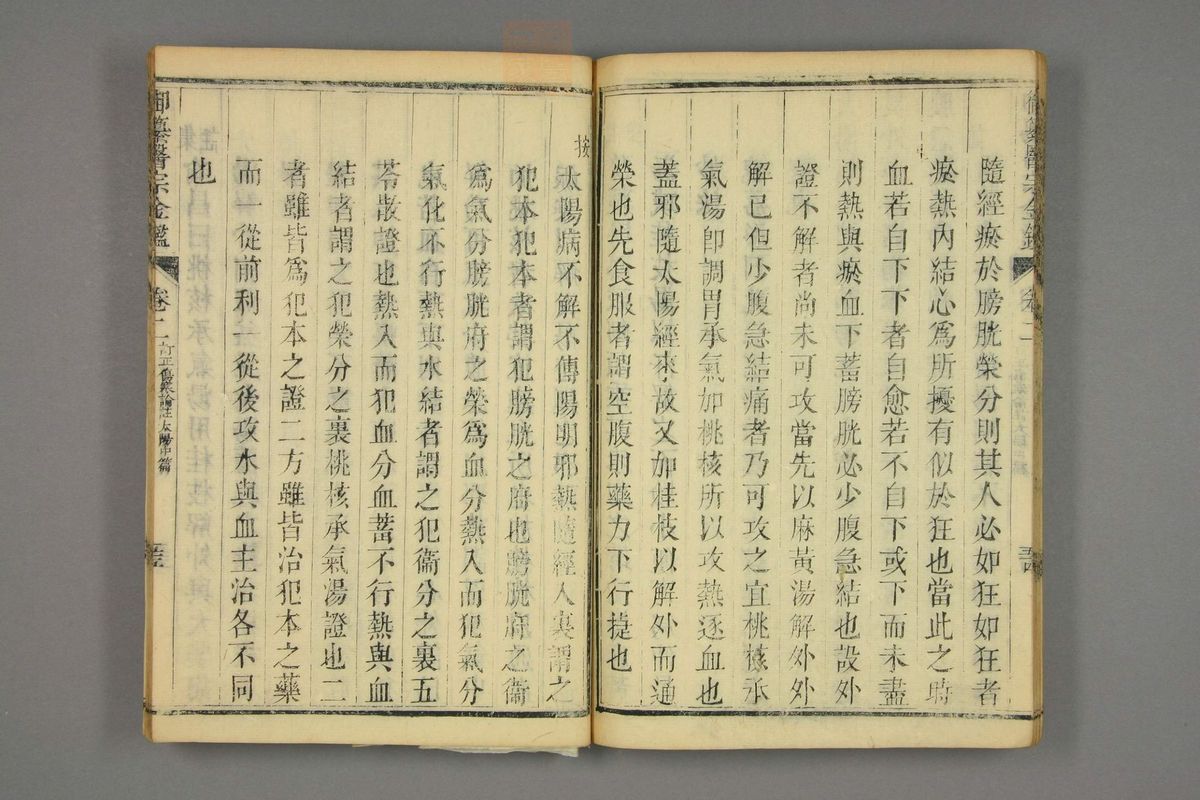 隨經瘀於膀胱榮分則其人必如狂如狂者
瘀熱內結心爲所擾有似於狂也當此之時
血若自下下者自愈若不自下或下而未盡
則熱與瘀血下蓄膀胱必少腹急結也設外
證不解者尚未可攻當先以麻黃湯解外外
解已但少腹急結痛者乃可攻之宜桃核承
氣湯卽調胃承氣加桃核所以攻熱逐血也
蓋邪隨太陽經來故又加桂枝以解外而通
榮也先食服者謂空腹則藥力下行捷也
按
太陽病不解不傳陽明邪熱隨經入裏謂之
犯本犯本者謂犯膀胱之府也膀胱府之衞
爲氣分膀胱府之榮爲血分熱入而犯氣分
氣化不行熱與水結者謂之犯衞分之裏五
苓散證也熱入而犯血分血蓄不行熱與血
結者謂之犯榮分之裏桃核承氣湯證也二
者雖皆爲犯本之證二方雖皆治犯本之藥
而一從前利一從後攻水與血主治各不同
也
御纂醫宗金鑑 卷二 訂正傷寒論註太陽中篇